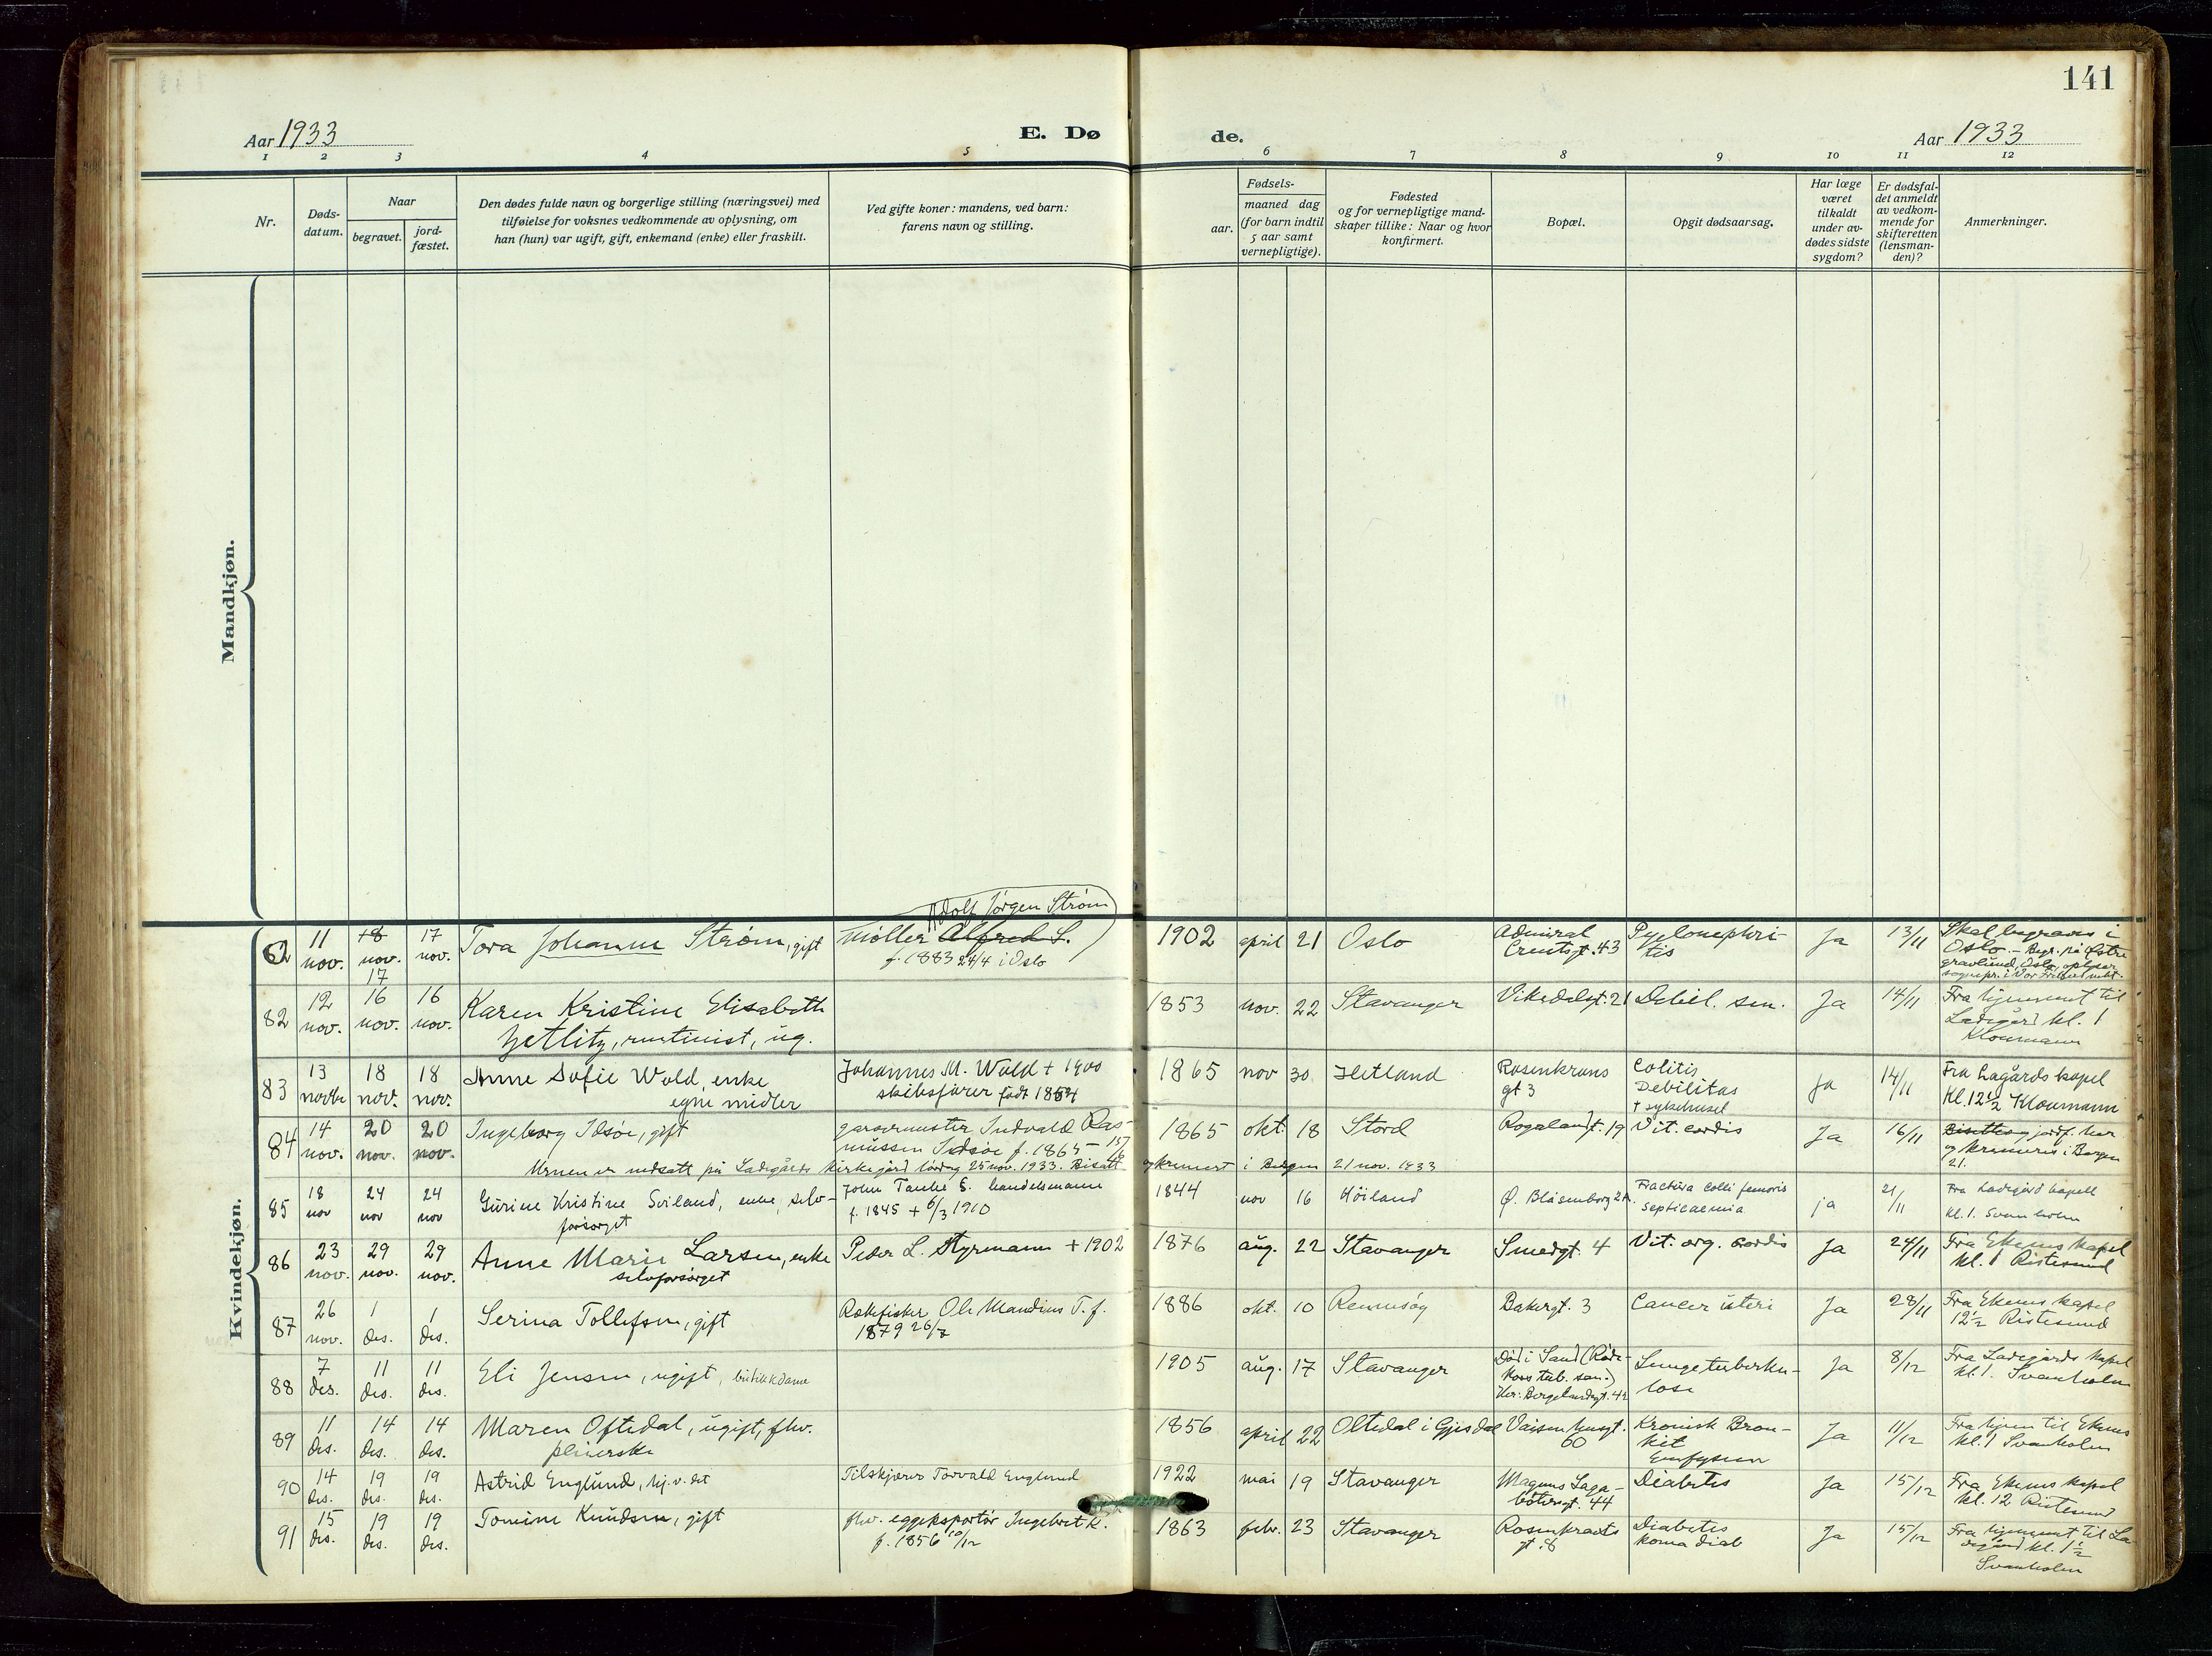 141
Aar 1933
E. Dø de.
Aar 1933
1 2 3 4 5 6 7 8 9 10 11 12
Nr.
Døds-
datum.
Naar
begravet.
jord-
fæstet.
Den dødes fulde navn og borgerlige stilling (næringsvei) med
tilføielse for voksnes vedkommende av oplysning, om
han (hun) var ugift, gift, enkemand (enke) eller fraskilt.
Ved gifte koner: mandens, ved barn:
farens navn og stilling.
Fødsels-
aar.
maaned dag
(for barn indtil
5 aar samt
vernepligtige).
Fødested
og for vernepligtige mand-
skaper tillike: Naar og hvor
konfirmert.
Bopæl.
Opgit dødsaarsag.
Har læge
været
tilkaldt
under av-
dødes sidste
sygdom?
Er dødsfal-
det anmeldt
av vedkom-
mende for
skifteretten
(lensman-
den)?
Anmerkninger.
Mandkjøn.
Kvindekjøn.
11
nov.
18
nov.
17
17
nov.
Tora Johanne Strøm, gift
Adolf Jørgen Strøm
Møller Alfred S.
f. 1883 24/4 i Oslo
1902 april 21 Oslo
Admiral
Cruutsgt. 43
Pyelonephri-
tis
Ja
13/11
Skal begraves i
Oslo. - Begr. på Østre
gravlund, Oslo, oplyser
sognepr. i Vor Frelsers
82
12
nov.
16
nov.
16
nov.
Karen Kristine Elisabeth
Hetlitz, rentenist, ug.
1853 nov. 22 Stavanger
Vikedalsgt. 21
Debil. sen.
Ja
14/11
Fra hjemmet til
Ladegård kl. 1
Kloumann
83
13
novbr
18
nov.
18
nov.
Anne Sofie Wold, enke
egne midler
Johannes M. Wold + 1900
skibsfører født 1854
1865 nov 30 Hetland
Rosenkrans
gt 3
Colitis
Debilitas
+ sykehuset
Ja
14/11
Fra Lagårds kapel
Kl. 12½ Kloumann
84
14
nov.
20
nov.
20
nov.
Ingeborg Idsøe, gift
garvermester Indvald Ras-
mussen Idsøe f. 1865 - 15/6
1865 okt. 18 Stord
Rogalandgt. 19
Vit. cordis
Ja
16/11
Bisettes og jordf. her
og kremeres i Bergen
21.
Urnen er nedsatt på Ladegårds kirkegård lørdag 25 nov. 1933. Bisatt og kremert i Bergen 21 nov. 1933
85
18
nov
24
nov
24
nov
Gurine Kristine Sviland, enke, selv-
forsørget
John Tanke S. handelsmann
f. 1845 + 6/3 1910
1844 nov 16 Høiland
Ø. Blåsenborg 2A.
Fractura colli femoris
septicaemia
ja
21/11
Fra Ladegård kapell
kl. 1. Svanholm
86
23
nov.
29
nov.
29
nov.
Anne Marie Larsen, enke
selvforsørget
Peder L. Styrmann + 1902
1876 aug. 22 Stavanger
Smedgt. 4
Vit. org. cordis
Ja
24/11
Fra Ekenes kapel
kl. 1 Ristesund
87
26
nov.
1
des.
1
des.
Serina Tollefsen, gift
Rekefisker Ole Mandius T. f.
1879 26/7
1886 okt. 10 Rennesøy
Bakergt. 3
Cancer uteri
Ja
28/11
Fra Ekenes kapel
12½ Ristesund
88
7
des.
11
des.
11
des.
Eli Jensen, ugift, butikkdame
1905 aug. 17 Stavanger
Død i Sand (Røde-
kors tub. san.)
Her: Bergelandsgt. 42
Lungetuberku-
lose
Ja
8/12
Fra Ladegårds kapel
kl. 1. Svanholm
89
11
des.
14
des.
14
des.
Maren Oftedal, ugift, fhv.
pleierske
1856 april 22 Oltedal i Gjesdal
Vaisenhusgt.
60
Kronisk Bron-
kit
Emfysem
Ja
11/12
Fra hjem til Ekenes
kl. 1 Svanholm
90
14
des.
19
des.
19
des.
Astrid Englund, hj.v.det
Tilskjærer Torvald Englund
1922 mai 19 Stavanger
Magnus Laga-
bøtersgt. 44
Diabetes
Ja
15/12
Fra Ekenes kapel
kl. 12 Ristesund
91
15
des.
19
des.
19
des.
Tomine Knudsen, gift
fhv. eggeksportør Ingebret K.
f. 1856 10/12
1863 febr. 23 Stavanger
Rosenkrants
gt. 8
Diabetes
koma diab
Ja
15/12
Fra hjemmet til La-
degård kl. 1½
Svanholm